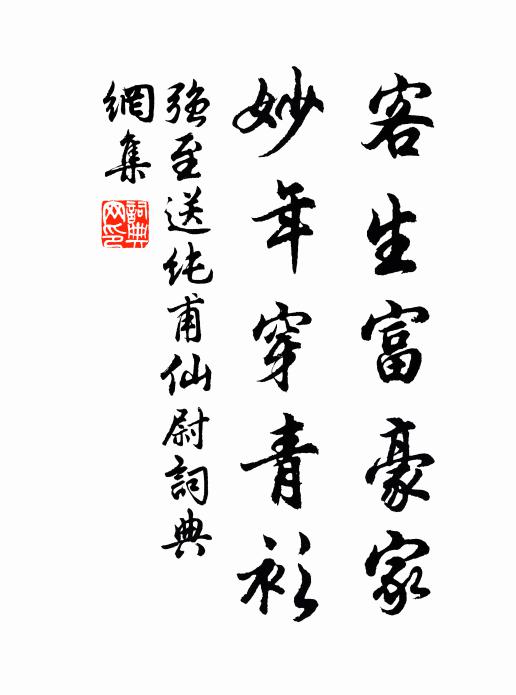 客生富豪家
妙年穿青衫
強至送純甫仙尉詞典
網集
詞典
网印